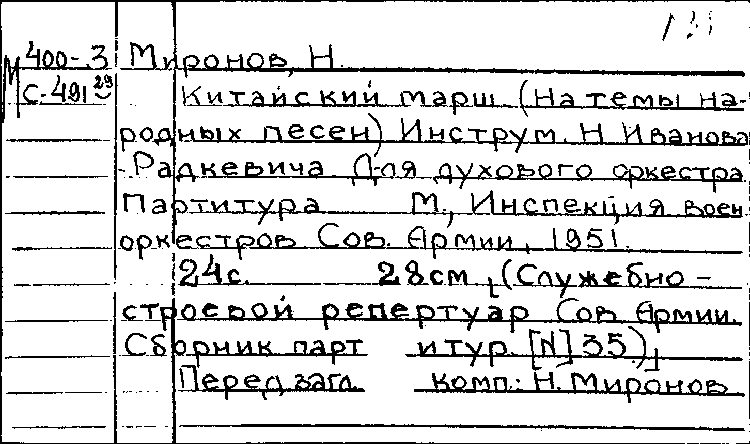 М 400-3 Миронов, Н.
С-491 29 Китайский марш (На темы на-
родных песен) Инструм. Н Иванова
-Радкевича Для духового оркестра
Партитура М., Инспекция воен
оркестров Сов. Армии, 1951.
24с. 28см (Служебно-
строевой репертуар Сов Армии.
Сборник парт итур. [N] 35.)
Перед загл. комп.: Н. Миронов